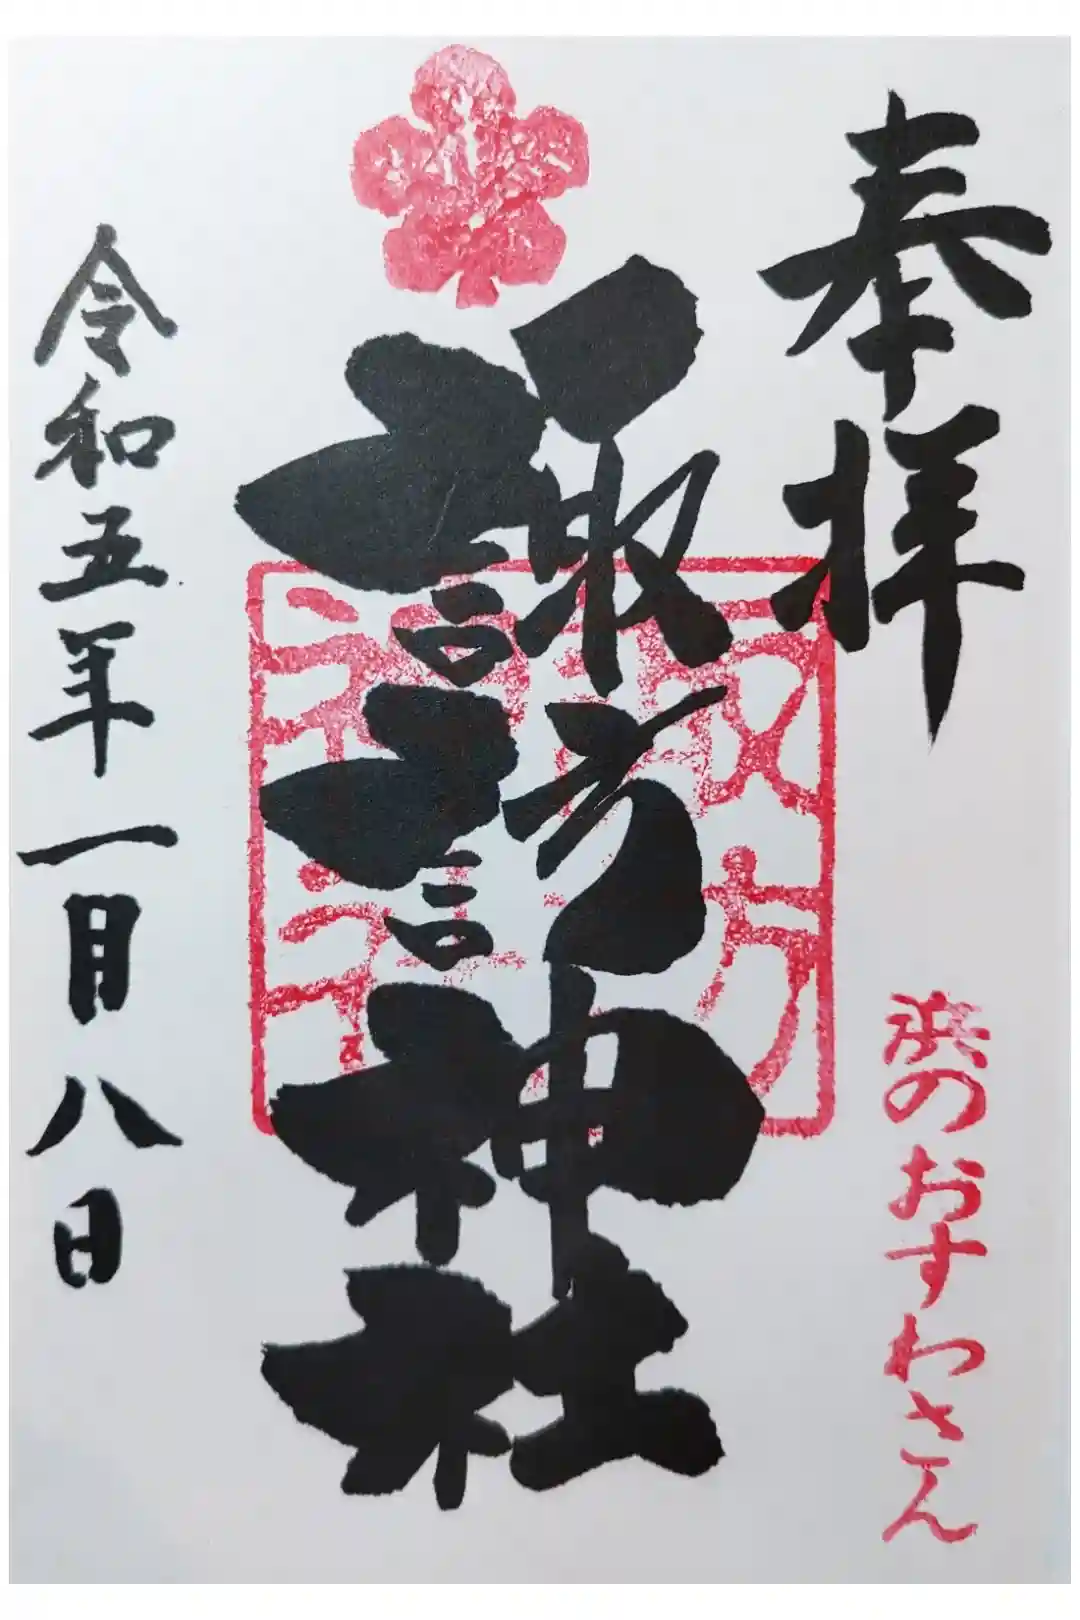 奉拝
浜のおすわさん
諏訪神社
諏訪
神社
令和五年一月八日